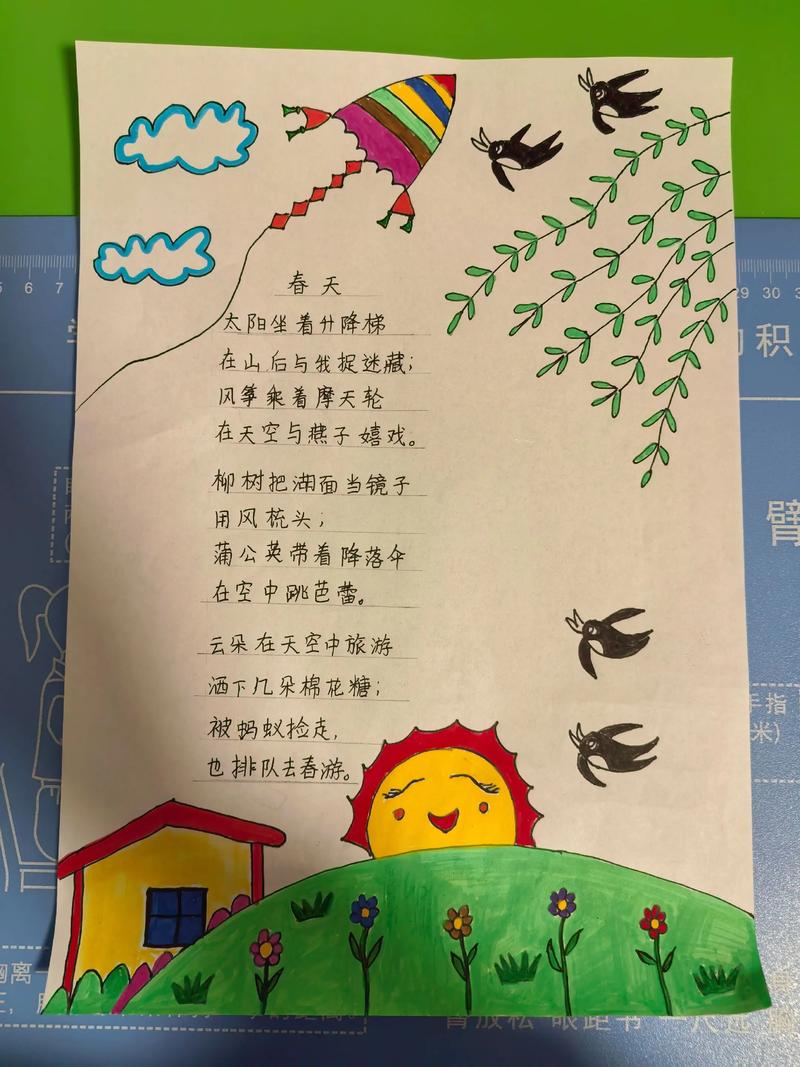 春天
太阳坐着升降梯
在山后与我捉迷藏；
风筝乘着摩天轮
在天空与燕子嬉戏。
柳树把湖面当镜子
用风梳头；
蒲公英带着降落伞
在空中跳芭蕾。
云朵在天空中旅游
洒下几朵棉花糖；
被蚂蚁捡走，
也排队去春游。
5 6 7
29 30
积
臂
手指
米)